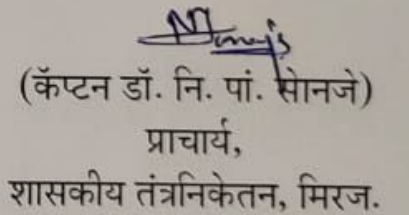 (कॅप्टन डॉ. नि. पां. सोनजे)
प्राचार्य,
शासकीय तंत्रनिकेतन, मिरज.